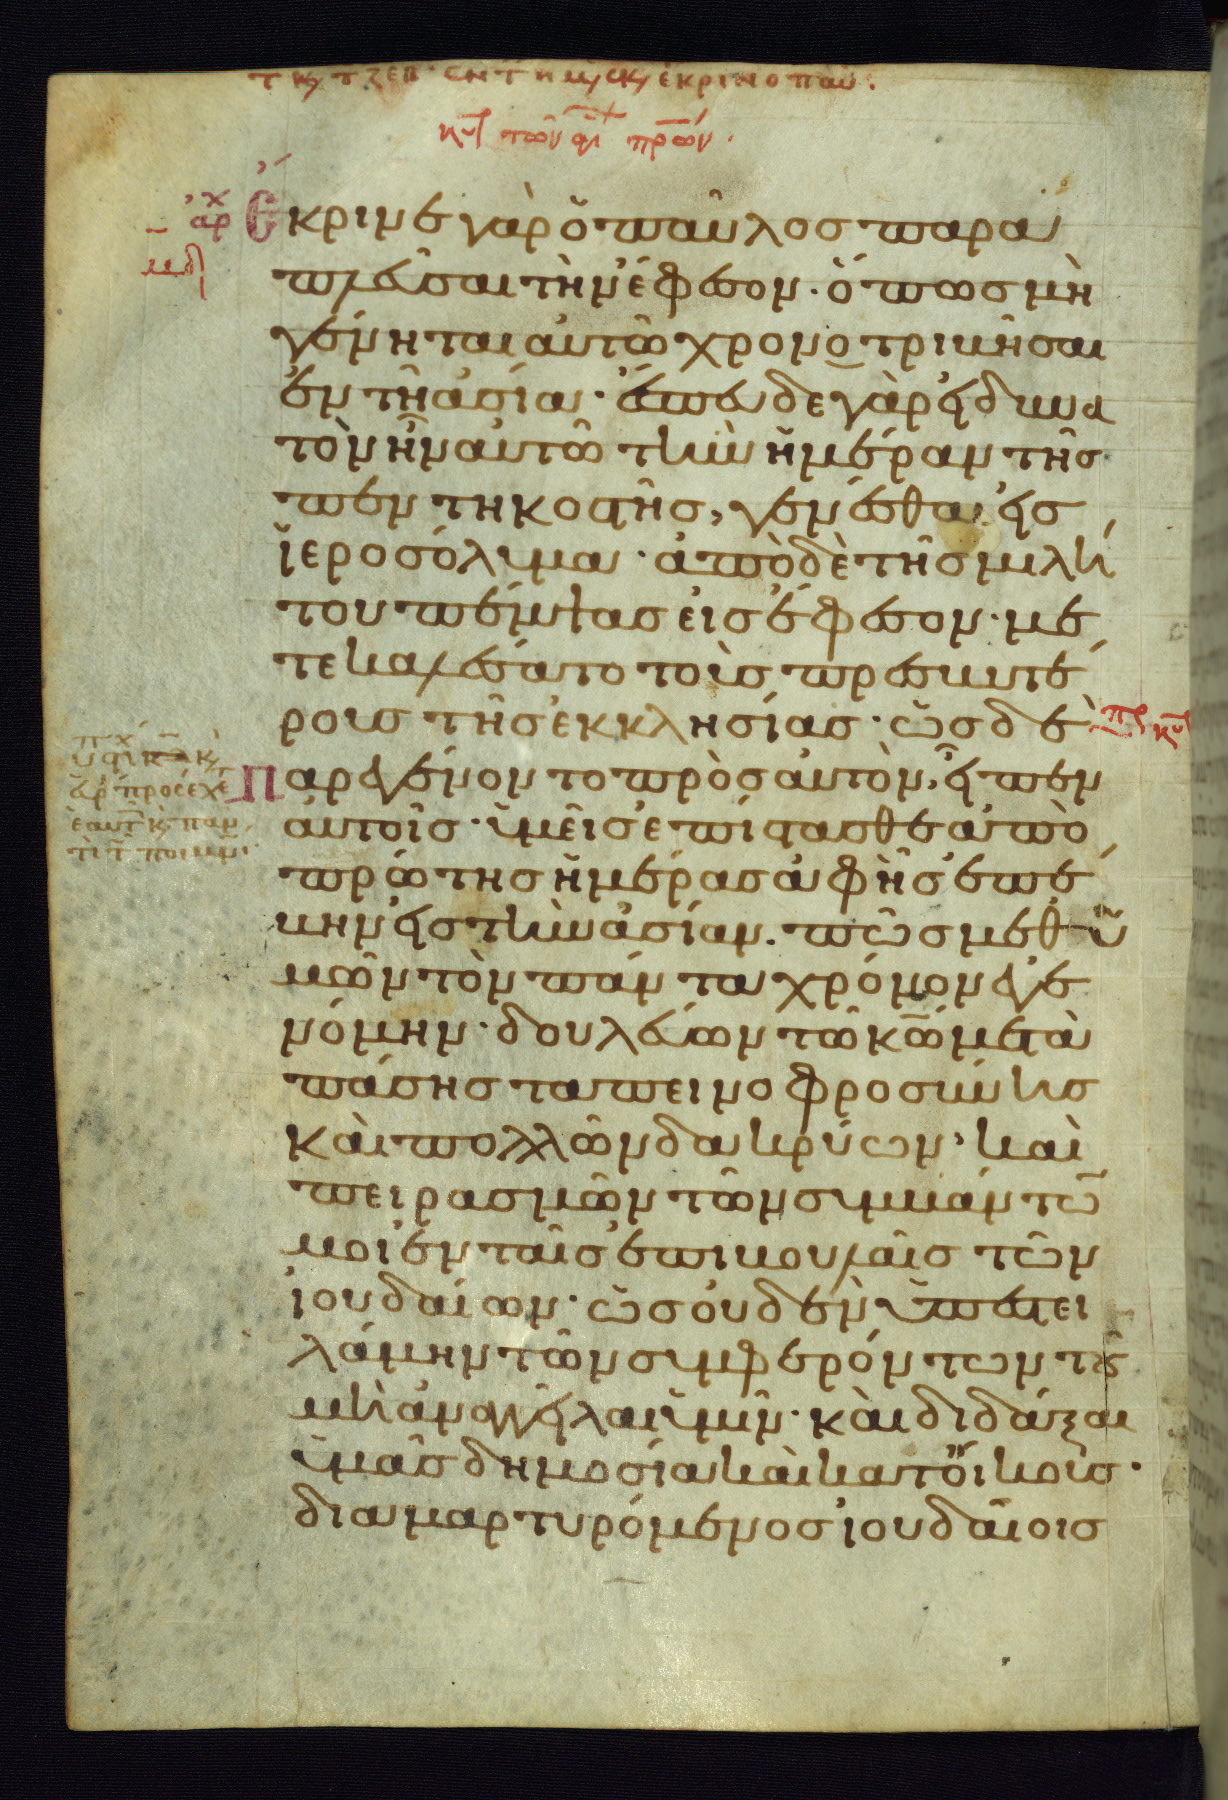 κυ τῶν ἁγι πρων
ἀρχ
Ἔκρινε γὰρ ὁ παῦλος παρα
πλεῦσαι τὴν ἔφεσον · ὅπως μὴ
γένηται αὐτῶ χρονοτριβῆσαι
ἐν τῆ ἀσία · ἔσπευδε γὰρ εἰ δυνα
τὸν ἦν αὐτῶ τὴν ἡμέραν τῆς
πεντηκοστῆς, γενέσθαι εἰς
ἱεροσόλυμα · ἀπὸ δὲ τῆς μιλή
του πέμψας εἰς ἔφεσον · με
τεκαλέσατο τοὺς πρεσβυτέ
ρους τῆς ἐκκλησίας · ὡς δὲ
Παρεγένοντο πρὸς αὐτὸν, εἶπεν
αὐτοῖς · ὑμεῖς ἐπίστασθε ἀπὸ
πρώτης ἡμέρας ἀφ ἧς ἐπέ
βην εἰς τὴν ἀσίαν. πῶς μεθ ὑ
μῶν τὸν πάντα χρόνον ἐγε
νόμην · δουλεύων τῶ κω μετὰ
πάσης ταπεινοφροσύνης
καὶ πολλῶν δακρύων · καὶ
πειρασμῶν τῶν συμβάντω
μοι ἐν ταῖς ἐπιβουλαῖς τῶν
ἰουδαίων · ὡς οὐδὲν ὑπεστει
λάμην τῶν συμφερόντων τοῦ
μὴ ἀναγγεῖλαι ὑμῖν · καὶ διδάξαι
ὑμᾶς δημοσία καὶ κατ οἴκους ·
διαμαρτυρόμενος ἰουδαίοις